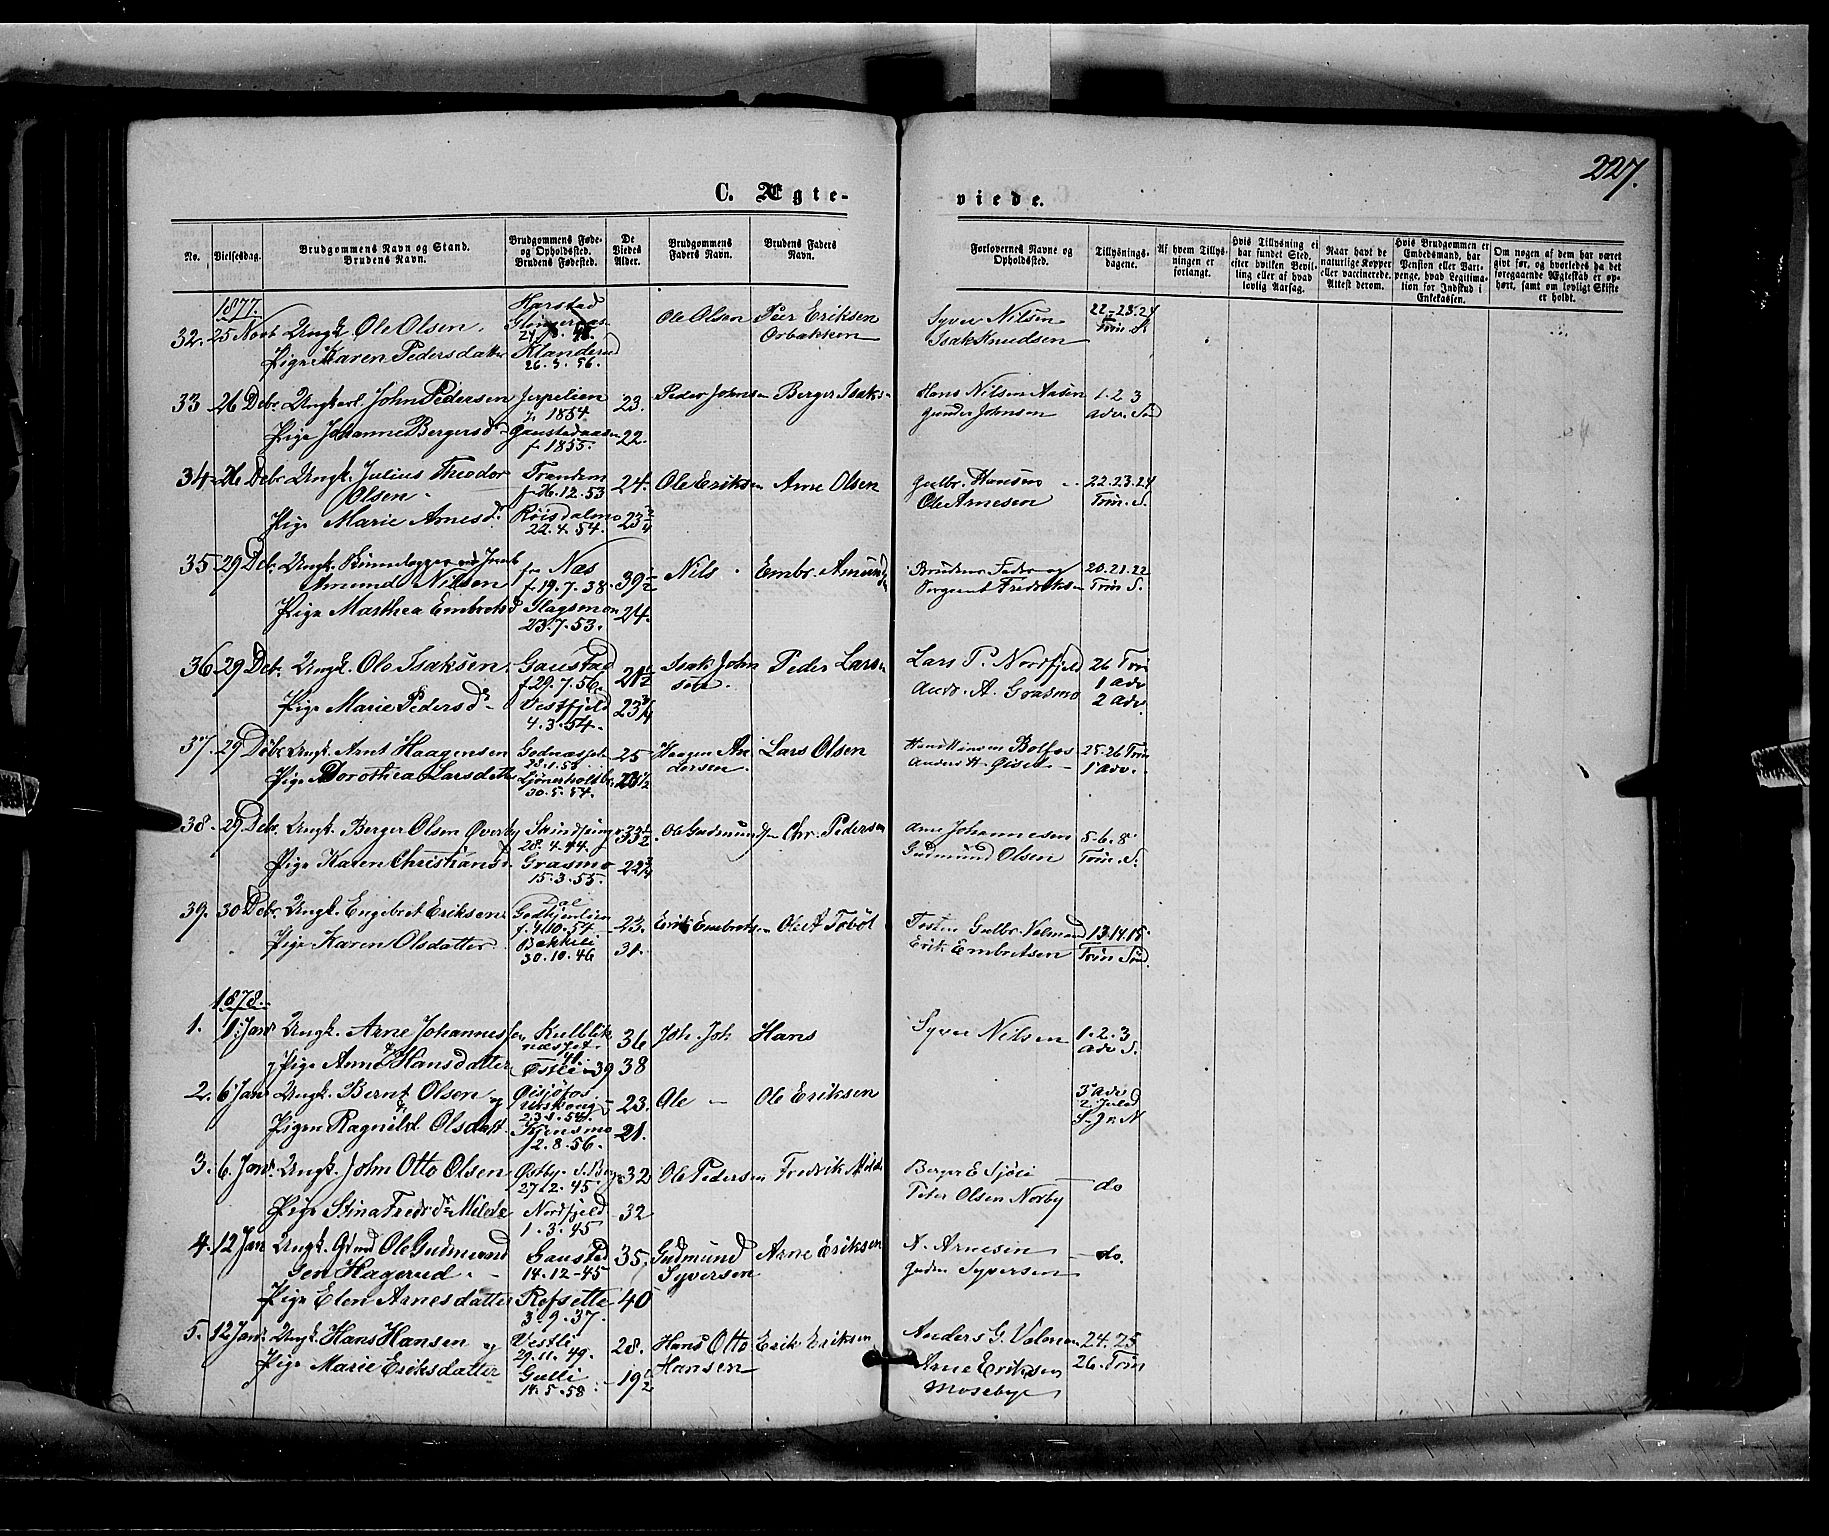 227.
C. Ægte-
viede.
No.
Vielsesdag.
Brudgommens Navn og Stand.
Brudens Navn.
Brudgommens Føde-
og Opholdssted.
Brudens Fødested.
De
Viedes
Alder.
Brudgommens
Faders Navn.
Brudens Faders
Navn.
Forlovernes Navne og
Opholdssted.
Tillysnings-
dagene.
Af hvem Tillys-
ningen er
forlangt.
Hvis Tillysning ei
har fundet Sted,
efter hvilken Bevil-
ling eller af hvad
lovlig Aarsag.
Naar havt de
naturlige Kopper
eller vaccinerede.
Attest derom.
Hvis Brudgommen er
Embedsmand, har
Pension eller Vart-
penge, hvad Legitima-
tion for Indskud i
Enkekassen.
Om nogen af dem har været
gift før, og hvorledes da det
foregaaende Ægteskab er op-
hørt, samt om lovligt Skifte
er holdt.
1877.
32. 25 Novb Ungk. Ole Olsen. Harstad Ole Olsen Peer Eriksen Orbakken Syver Nilsen Isak Knudsen 22-23.24 Trin. S.
Pige Karen Pedersdatter Klanderud 26.3.56.
33 26 Debr. Ungkarl. John Pedersen 1854. 23. Peder Johnsen Berger Isaks- Hans Nilsen Aasen Gunder Johnsen 1.2 3 adv. Sød
Pige Johanne Bergersd. Gaustadaasen f. 1855. 22.
34. 26 Debr. Ungk. Julius Theodor Olsen Trandem f. 26.12.53 24. Ole Eriksen Arne Olsen Gulbr. Hansen Ole Arnesen 22.23.24 Trin. S.
Pige Marie Arnesd. Røisdalmo 22.4.54. 23 3/4
35 29 Debr. Ungk. Amund Nilsen fra Næs f. 19.7.38. 39 1/2 Nils Embr. Amunds Brudens Fader og Sergeant Fredriksen 20.21.22 Trin S.
Pige Marthea Embretsd Slagsmoen 23.7.53. 24.
36 29 Debr. Ungk. Ole Isaksen. Gaustad f. 29.7.56. 21 1/2 Isak Johnsen. Peder Larsen Lars P. Nordfjeld Andr. A. Grasmo 26 Trin 1 adv 2 adv.
Pige Marie Pedersdr Vestfjeld 4.3.54. 23 3/4
37. 29 Debr. Ungk. Arnt Haagensen 25 Haagen Andersen. Lars Olsen 25.26 Trin 1 adv.
Pige Dorothea Larsdatter 30.5.54. 23 1/2
38. 29 Debr. Ungk. Berger Olsen Overby 28.4.44. 33 1/2 Ole Gudmunds Chr. Pedersen Arne Johannesen Gudmund Olsen 5.6.8 Trin. S.
Pige Karen Christiansd. Grasmo 15.3.55. 22 3/4
39. 30 Debr. Ungk. Engebret Eriksen f. 4.10.54. 23. Erik Embretsen Ole A Tobøl Tosten Gulbr. Volmoen Erik Embretsen 13.14.15 Trin Sød.
Pige Karen Olsdatter. Bakkeli 30.10.46 31.
1878.
1. 1. Jan Ungk. Arne Johannessen Kulblik næsset 41. 36 Joh. Joh. Hans Syver Nilsen 1.2.3 adv S.
Pige Anne Hansdatter Østli 39 38
2. 6 Jan Ungk. Bernt Olsen og 23. Ole Ole Eriksen 3 adv.
Pigen Ragnild Olsdatt. Kjensmo 2.8.56. 21.
3. 6. Jan. Ungk. John Otto Olsen Østby 27.2.45 32 Ole Pedersen Fredrik Milde Berger E Sjøli Peter Olsen Norby do
Pige Stina Fredrdr Milde Nordfjeld 1.3.45 32
4. 12 Jan Ungk. Ole Gudmundsen Hagerud. Gaustad 14.12-45 35. Gudmund Syversen Arne Eriksen A. Arnesen Gudm Syversen do.
Pige Elen Arnesdatter Refsette 3.9.37. 40
5. 12 Jan. Ungk. Hans Hansen og Vestli 29.11.49. 28. Hans Otto Hansen Erik Eriksen Anders G. Volmoen Arne Eriksen Mosebye 24.25 26. Trin
Pige Marie Eriksdatter Gulli 14.5.58. 19 1/2